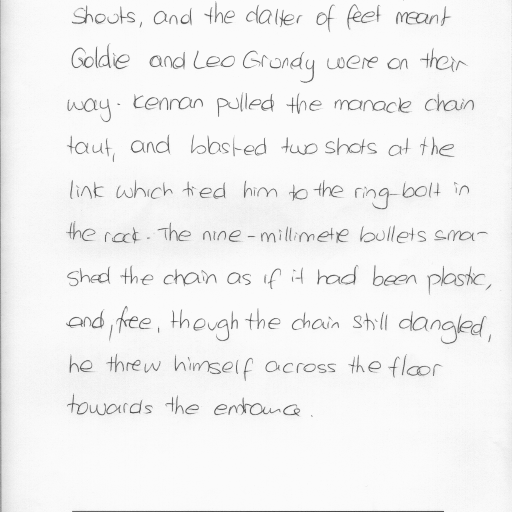 Shouts, and the clatter of feet meant
Goldie and Leo Grundy were on their
way. Kennan pulled the manacle chain
taut, and blasted two shots at the
link which tied him to the ring-bolt in
the rock. The nine-millimetre bullets sma-
shed the chain as if it had been plastic,
and, free, though the chain still dangled,
he threw himself across the floor
towards the entrance.